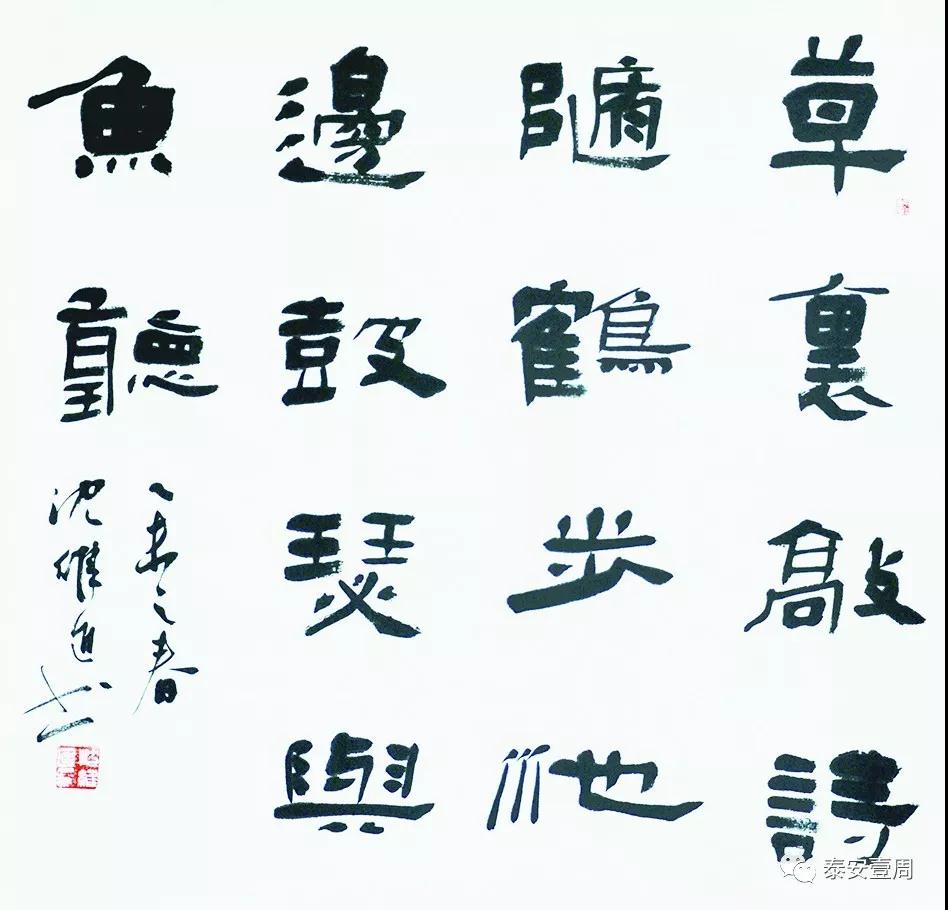 草裏敲詩
隨鶴步池
邊鼓瑟與
魚聽
乙未之春
沈維進书
泰安壹周